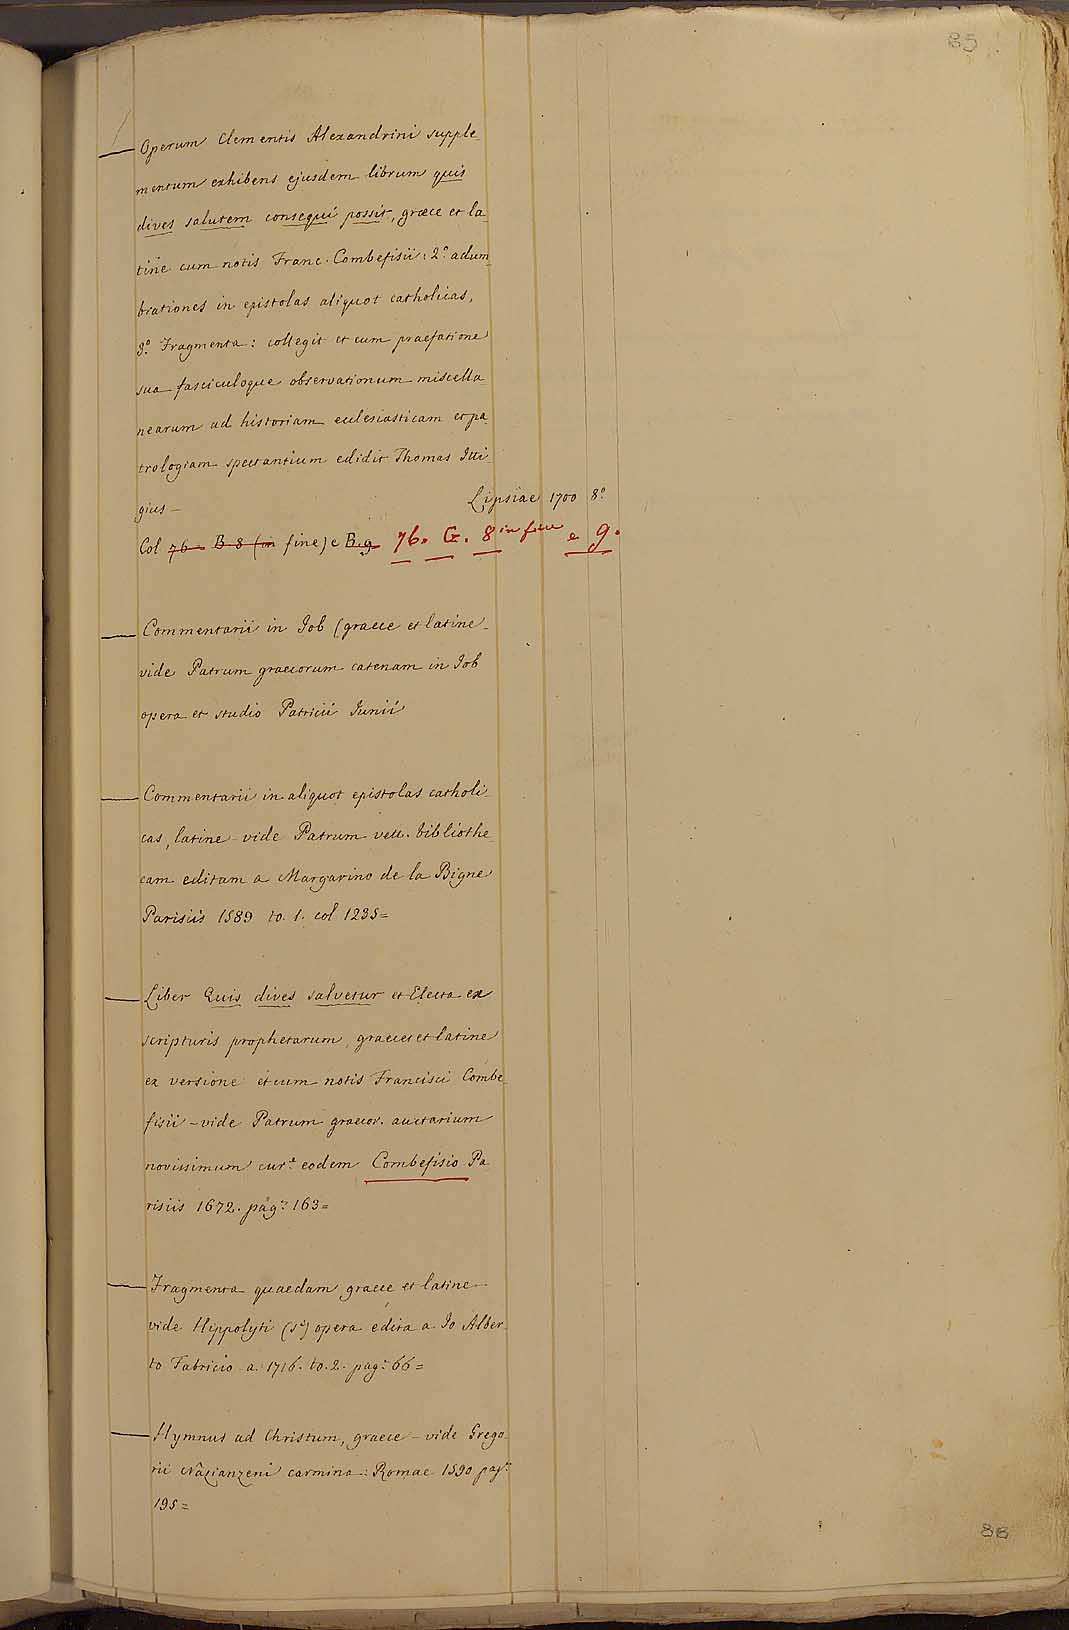 85
— Operum Clementis Alexandrini supple-
mentum exhibens ejusdem librum quis
dives salutem consequi possit, græce et la-
tine cum notis Franc. Combefisii: 2.º adum-
brationes in epistolas aliquot catholicas,
3.º Fragmenta: collegit et cum praefatione
sua fasciculoque observationum miscella-
nearum ad historiam ecclesiasticam et pa-
trologiam spectantium edidit Thomas Itti-
gius — Lipsiae 1700 8.º
Col 76. B. 8 (in fine) e B. 9 76. G. 8 in fine e 9.
— Commentarii in Job (graece et latine -
vide Patrum graecorum catenam in Job
opera et studio Patricii Junii
— Commentarii in aliquot epistolas catholi-
cas, latine - vide Patrum vett. bibliothe-
cam editam a Margarino de la Bigne
Parisiis 1589 to. 1. col 1235=
— Liber Quis dives salvetur et Electa ex
scripturis prophetarum, graece et latine
ex versione et cum notis Francisci Combe-
fisii - vide Patrum graecor. auctarium
novissimum cur.ª eodem Combefisio Pa-
risiis 1672. pag: 163=
— Fragmenta quaedam graece et latine -
vide Hippolyti (S.i) opera edita a Jo Alber-
to Fabricio a. 1716. to. 2. pag: 66=
— Hymnus ad Christum, graece - vide Grego-
rii Nazianzeni carmina: Romae 1590 pag:
195=